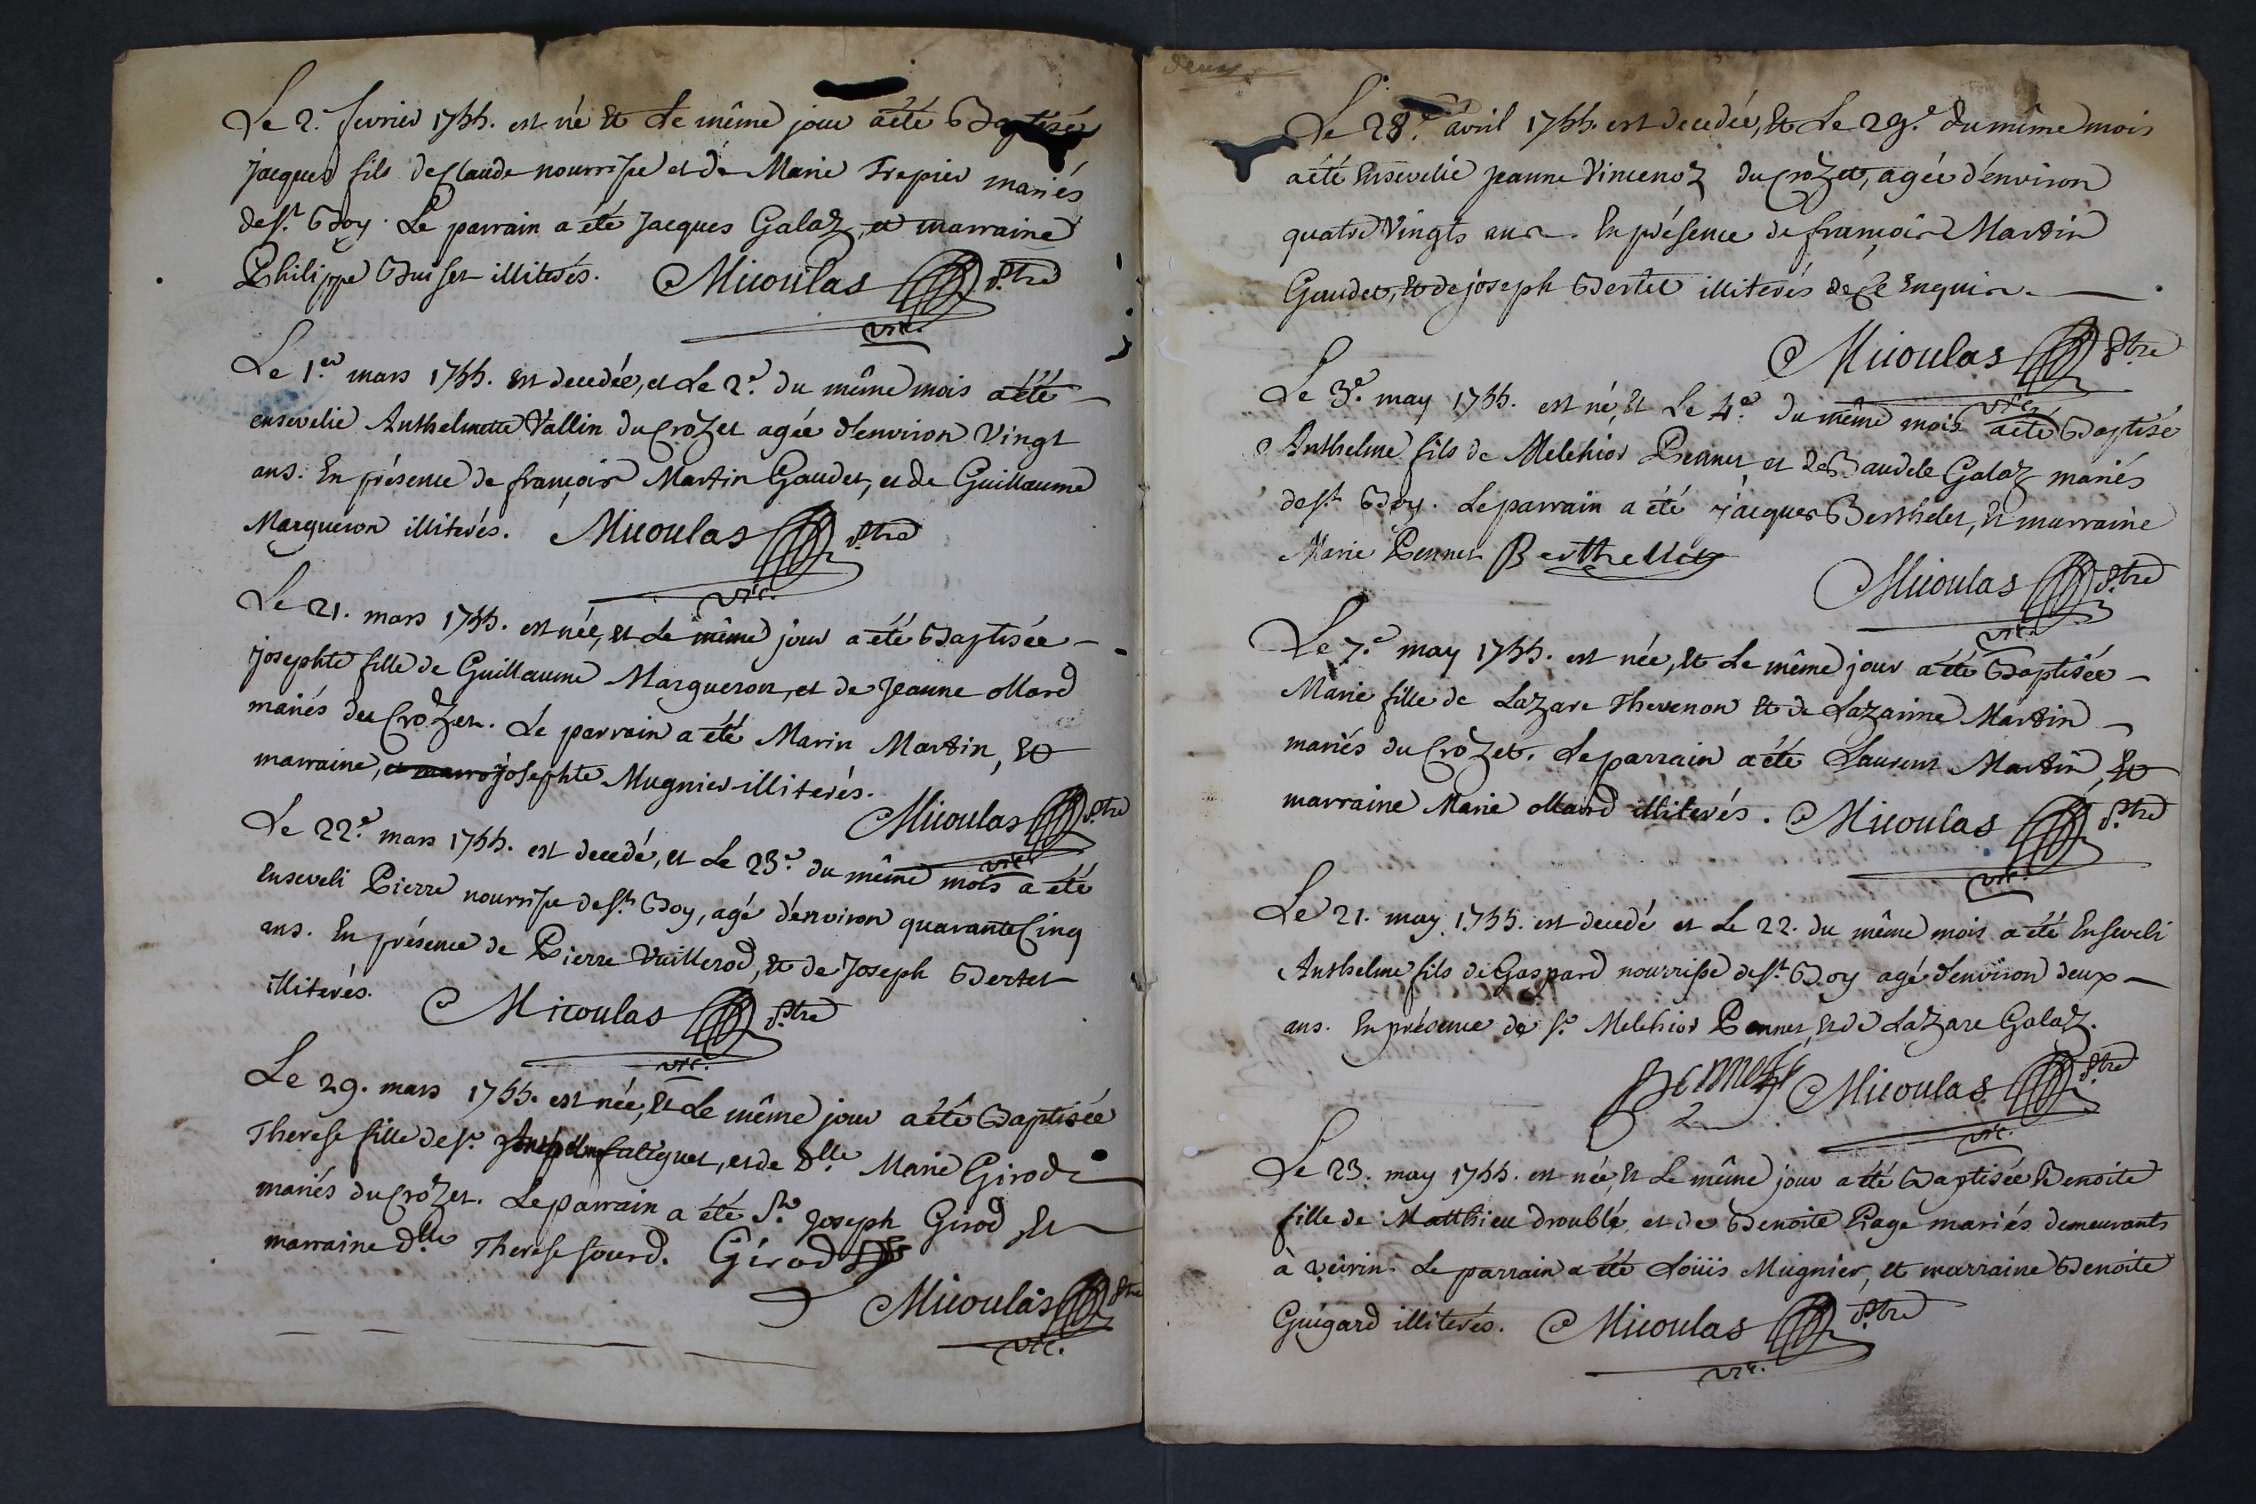 Le 2.e fevrier 1755. est né Et Le même jour a été Baptisé
jacques fils de Claude nourrisse et de Marie Trepier mariés
de st. Boy. Le parrain a été Jacques Galaz, et marraine
Philippe Buisset illiterés. Micoulas ptre
vic.
Le 1.er mars 1755. Est decedée, et Le 2.e du même mois a été
ensevelie Anthelmette Vallin du Crozet agée d'environ Vingt
ans. En présence de françois Martin Gaudet, et de Guillaume
Margueron illiterés. Micoulas ptre
vic.
Le 21. mars 1755. est née, Et Le même jour a été Baptisée
josephte fille de Guillaume Margueron, et de Jeanne ollard
mariés du Crozet. Le parrain a été Marin Martin, Et
marraine, et marr josephte Mugnier illiterés.
Micoulas ptre
vic.
Le 22.e mars 1755. est decedé, et Le 23.e du même mois a été
Enseveli Pierre nourrisse de st. Boy, agé d'environ quarante Cinq
ans. En présence de Pierre Vuillerod, Et de Joseph Bertet
illiterés. Micoulas ptre
vic.
Le 29. mars 1755. est née, Et Le même jour a été Baptisée
Therese fille de sr. faliguet, et de dlle Marie Girod
mariés du Crozet. Le parrain a été sr. Joseph Girod Et
marraine dlle Therese sourd. Girod
Micoulas ptre
vic.
deux
Le 28.e avril 1755. est decedée, Et Le 29.e du même mois
a été Ensevelie jeanne Vincenoz du Crozet, agée d'environ
quatre Vingts ans. En présence de françois Martin
Gaudet, Et de joseph Bertet illiterés de Ce Enquis.
Micoulas ptre
vic.
Le 3.e may 1755. est né, Et Le 4.e du même mois a été Baptisé
Anthelme fils de Melchior Pennet et de Baudele Galaz mariés
de st. Boy. Le parrain a été jacques Berthelet, Et marraine
Marie Pennet Berthellet
Micoulas ptre
vic.
Le 7.e may 1755. est née, Et Le même jour a été Baptisée
Marie fille de Lazare Thevenon Et de Lazarine Martin
mariés du Crozet. Le parrain a été Laurent Martin, Et
marraine Marie ollard illiterés. Micoulas ptre
vic.
Le 21. may 1755. est decedé et Le 22. du même mois a été Enseveli
Anthelme fils de Gaspard nourrisse de st. Boy agé d'environ deux
ans. En présence de sr. Melchior Pennet, Et de Lazare Galaz.
Micoulas ptre
vic.
Le 23. may 1755. est née, Et Le même jour a été Baptisée Benoite
fille de Matthieu droublé, et de Benoite Page mariés demeurants
à veirin. Le parrain a été Loüis Mugnier, et marraine Benoite
Guigard illiterés. Micoulas ptre
vic.